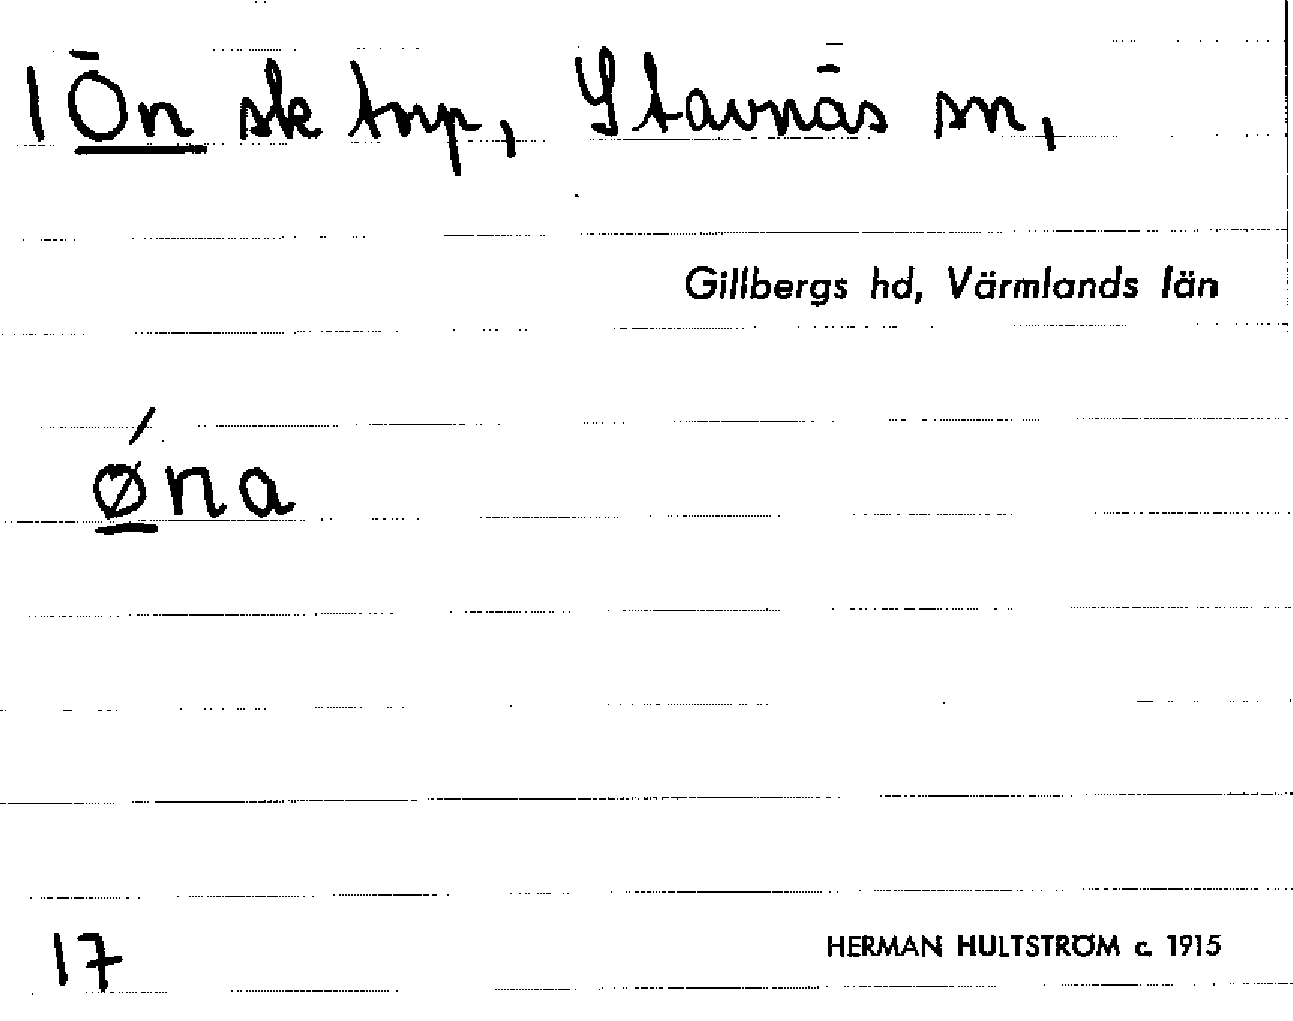 1 Ön sk tnp, Stavnäs sn,
Gillbergs hd, Värmlands län
ǿna
17
HERMAN HULTSTRÖM c. 1915